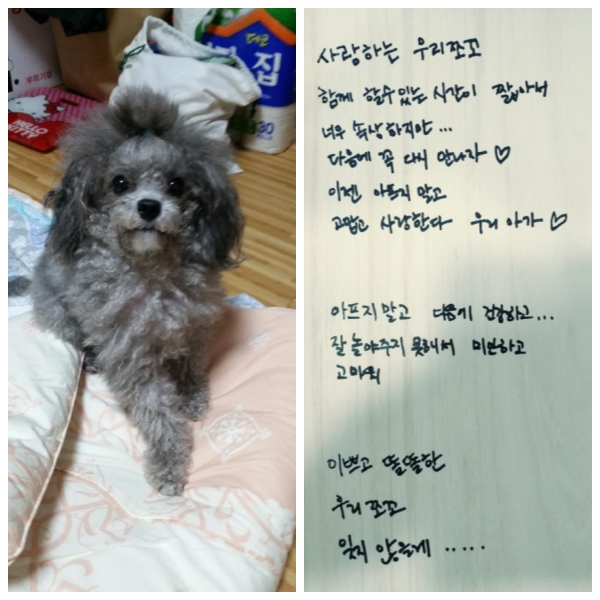 HELLO
KITTY
집
30
사랑하는 우리쪼꼬
함께 할수있는 시간이 짧아서
너무 속상하지만...
다음에 꼭 다시 만나자♡
이젠 아프지 말고
고맙고 사랑한다 우리 아가♡
아프지말고 다음에 건강하고...
잘 놀아주지 못해서 미안하고
고마워
이쁘고 똘똘한
우리쪼꼬
잊지 않을게 .....